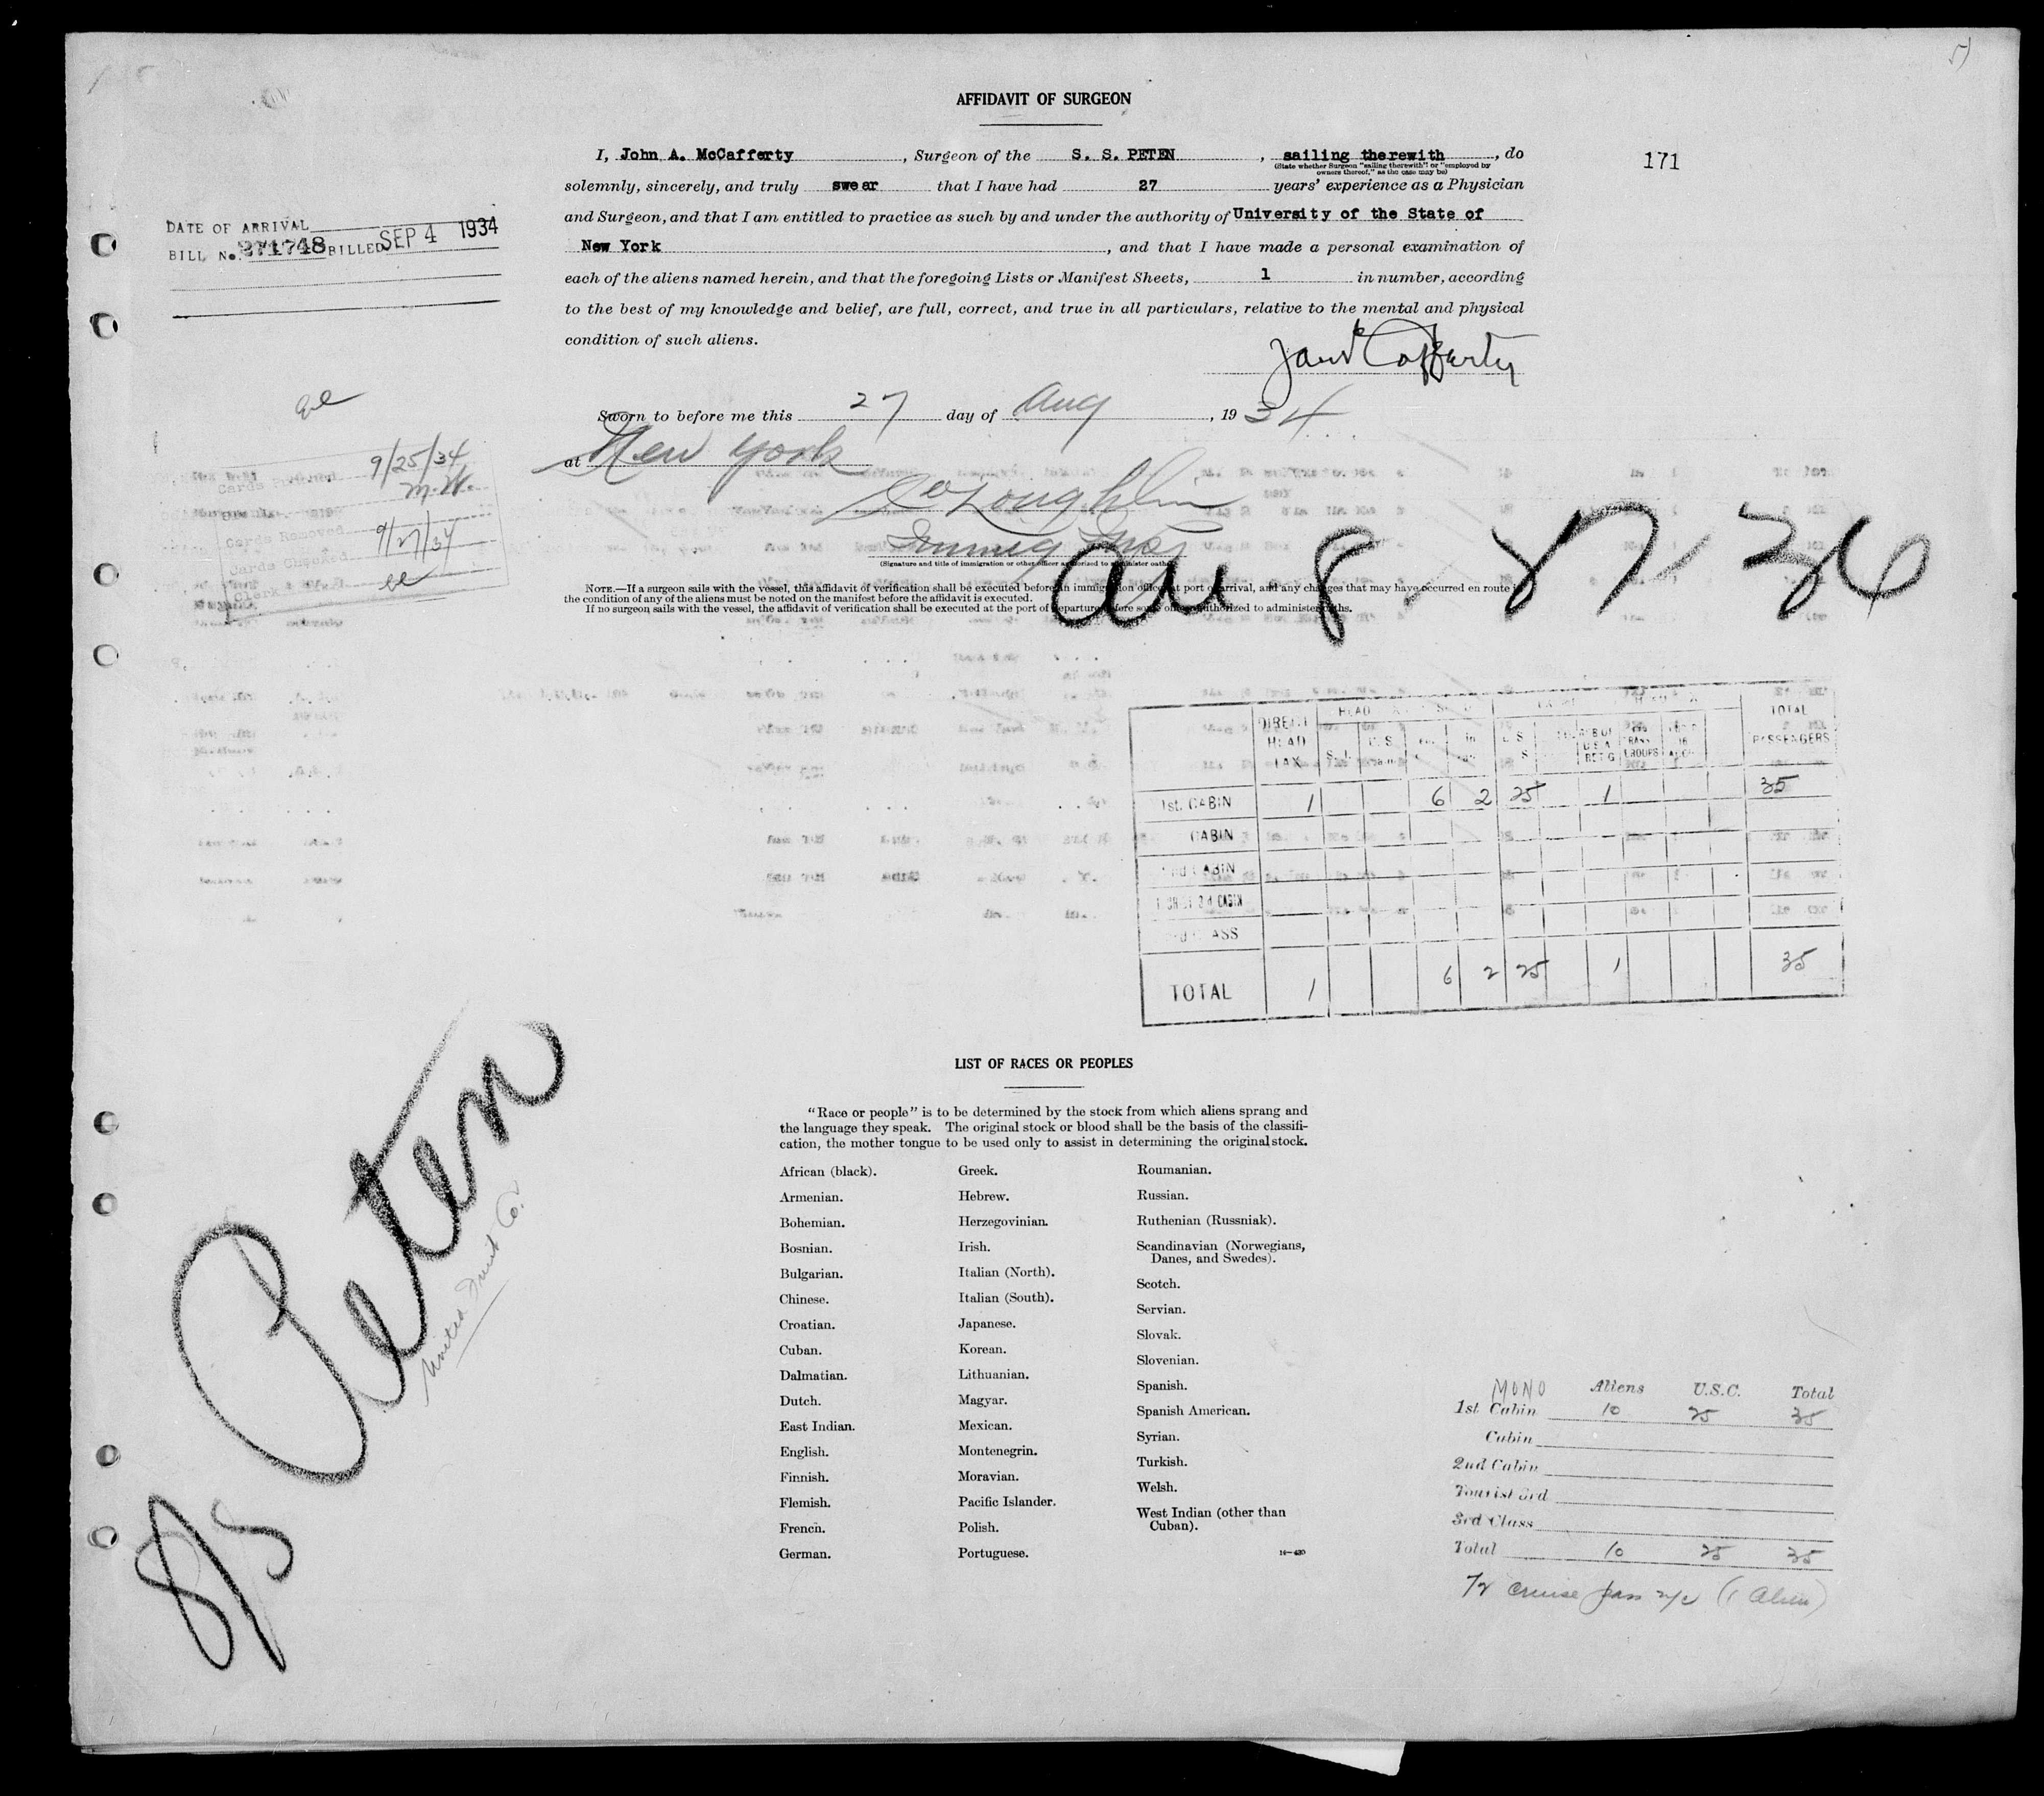 AFFIDAVIT OF SURGEON
171
I, John A. McCafferty, Surgeon of the S. S. PETEN, sailing therewith, do
(State whether Surgeon "sailing therewith" or "employed by
owners thereof," as the case may be)
solemnly, sincerely, and truly swear that I have had 27 years' experience as a Physician
and Surgeon, and that I am entitled to practice as such by and under the authority of University of the State of
New York, and that I have made a personal examination of
each of the aliens named herein, and that the foregoing Lists or Manifest Sheets, 1 in number, according
to the best of my knowledge and belief, are full, correct, and true in all particulars, relative to the mental and physical
condition of such aliens.
DATE OF ARRIVAL
BILL No. 271748 BILLED SEP 4 1934
Sworn to before me this 27 day of Aug, 1934
at New York
Immig Insp
(Signature and title of immigration or other officer authorized to administer oaths)
NOTE.—If a surgeon sails with the vessel, this affidavit of verification shall be executed before an immigration officer at port of arrival, and any changes that may have occurred en route in
the condition of any of the aliens must be noted on the manifest before the affidavit is executed.
If no surgeon sails with the vessel, the affidavit of verification shall be executed at the port of departure before some officer authorized to administer oaths.
9/25/34
M.W.
Cards Removed
9/27/34
Cards Checked
Clerk
DIRECT HEAD TAX
TOTAL PASSENGERS
1st. CABIN 1 6 2 25 1 35
CABIN
2nd CABIN
TOTAL 1 6 2 25 1 35
S/S Peten
United Fruit Co.
LIST OF RACES OR PEOPLES
"Race or people" is to be determined by the stock from which aliens sprang and
the language they speak. The original stock or blood shall be the basis of the classifi-
cation, the mother tongue to be used only to assist in determining the original stock.
African (black).
Armenian.
Bohemian.
Bosnian.
Bulgarian.
Chinese.
Croatian.
Cuban.
Dalmatian.
Dutch.
East Indian.
English.
Finnish.
Flemish.
French.
German.
Greek.
Hebrew.
Herzegovinian.
Irish.
Italian (North).
Italian (South).
Japanese.
Korean.
Lithuanian.
Magyar.
Mexican.
Montenegrin.
Moravian.
Pacific Islander.
Polish.
Portuguese.
Roumanian.
Russian.
Ruthenian (Russniak).
Scandinavian (Norwegians,
Danes, and Swedes).
Scotch.
Servian.
Slovak.
Slovenian.
Spanish.
Spanish American.
Syrian.
Turkish.
Welsh.
West Indian (other than
Cuban).
14—420
MONO Aliens U.S.C. Total
1st Cabin 10 25 35
Cabin
2nd Cabin
Tourist 3rd
3rd Class
Total 10 25 35
72 cruise pass (1 Alien)